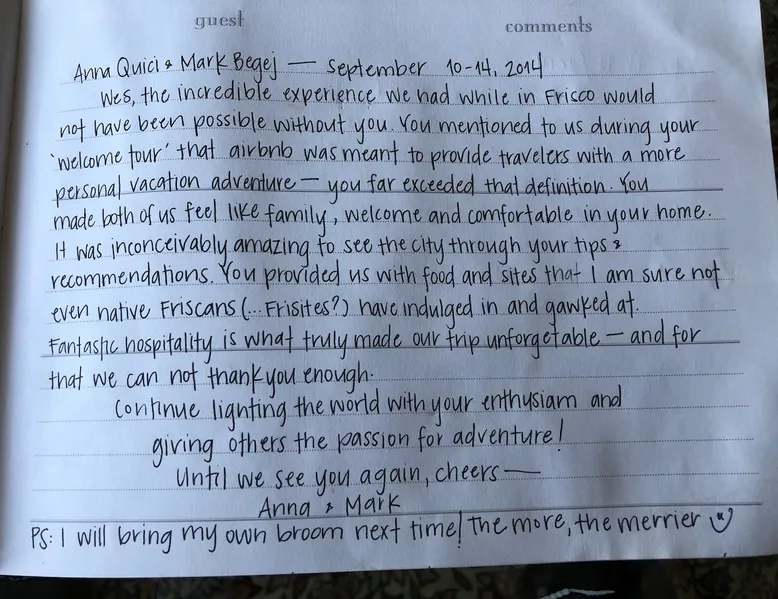 guest comments
Anna Quici & Mark Begej — September 10-14, 2014
Wes, the incredible experience we had while in Frisco would
not have been possible without you. You mentioned to us during your
'welcome tour' that airbnb was meant to provide travelers with a more
personal vacation adventure — you far exceeded that definition. You
made both of us feel like family, welcome and comfortable in your home.
It was inconceivably amazing to see the city through your tips &
recommendations. You provided us with food and sites that I am sure not
even native Friscans (...Frisites?) have indulged in and gawked at.
Fantastic hospitality is what truly made our trip unforgetable — and for
that we can not thank you enough.
Continue lighting the world with your enthusiam and
giving others the passion for adventure!
Until we see you again, cheers —
Anna & Mark
PS: I will bring my own broom next time! The more, the merrier